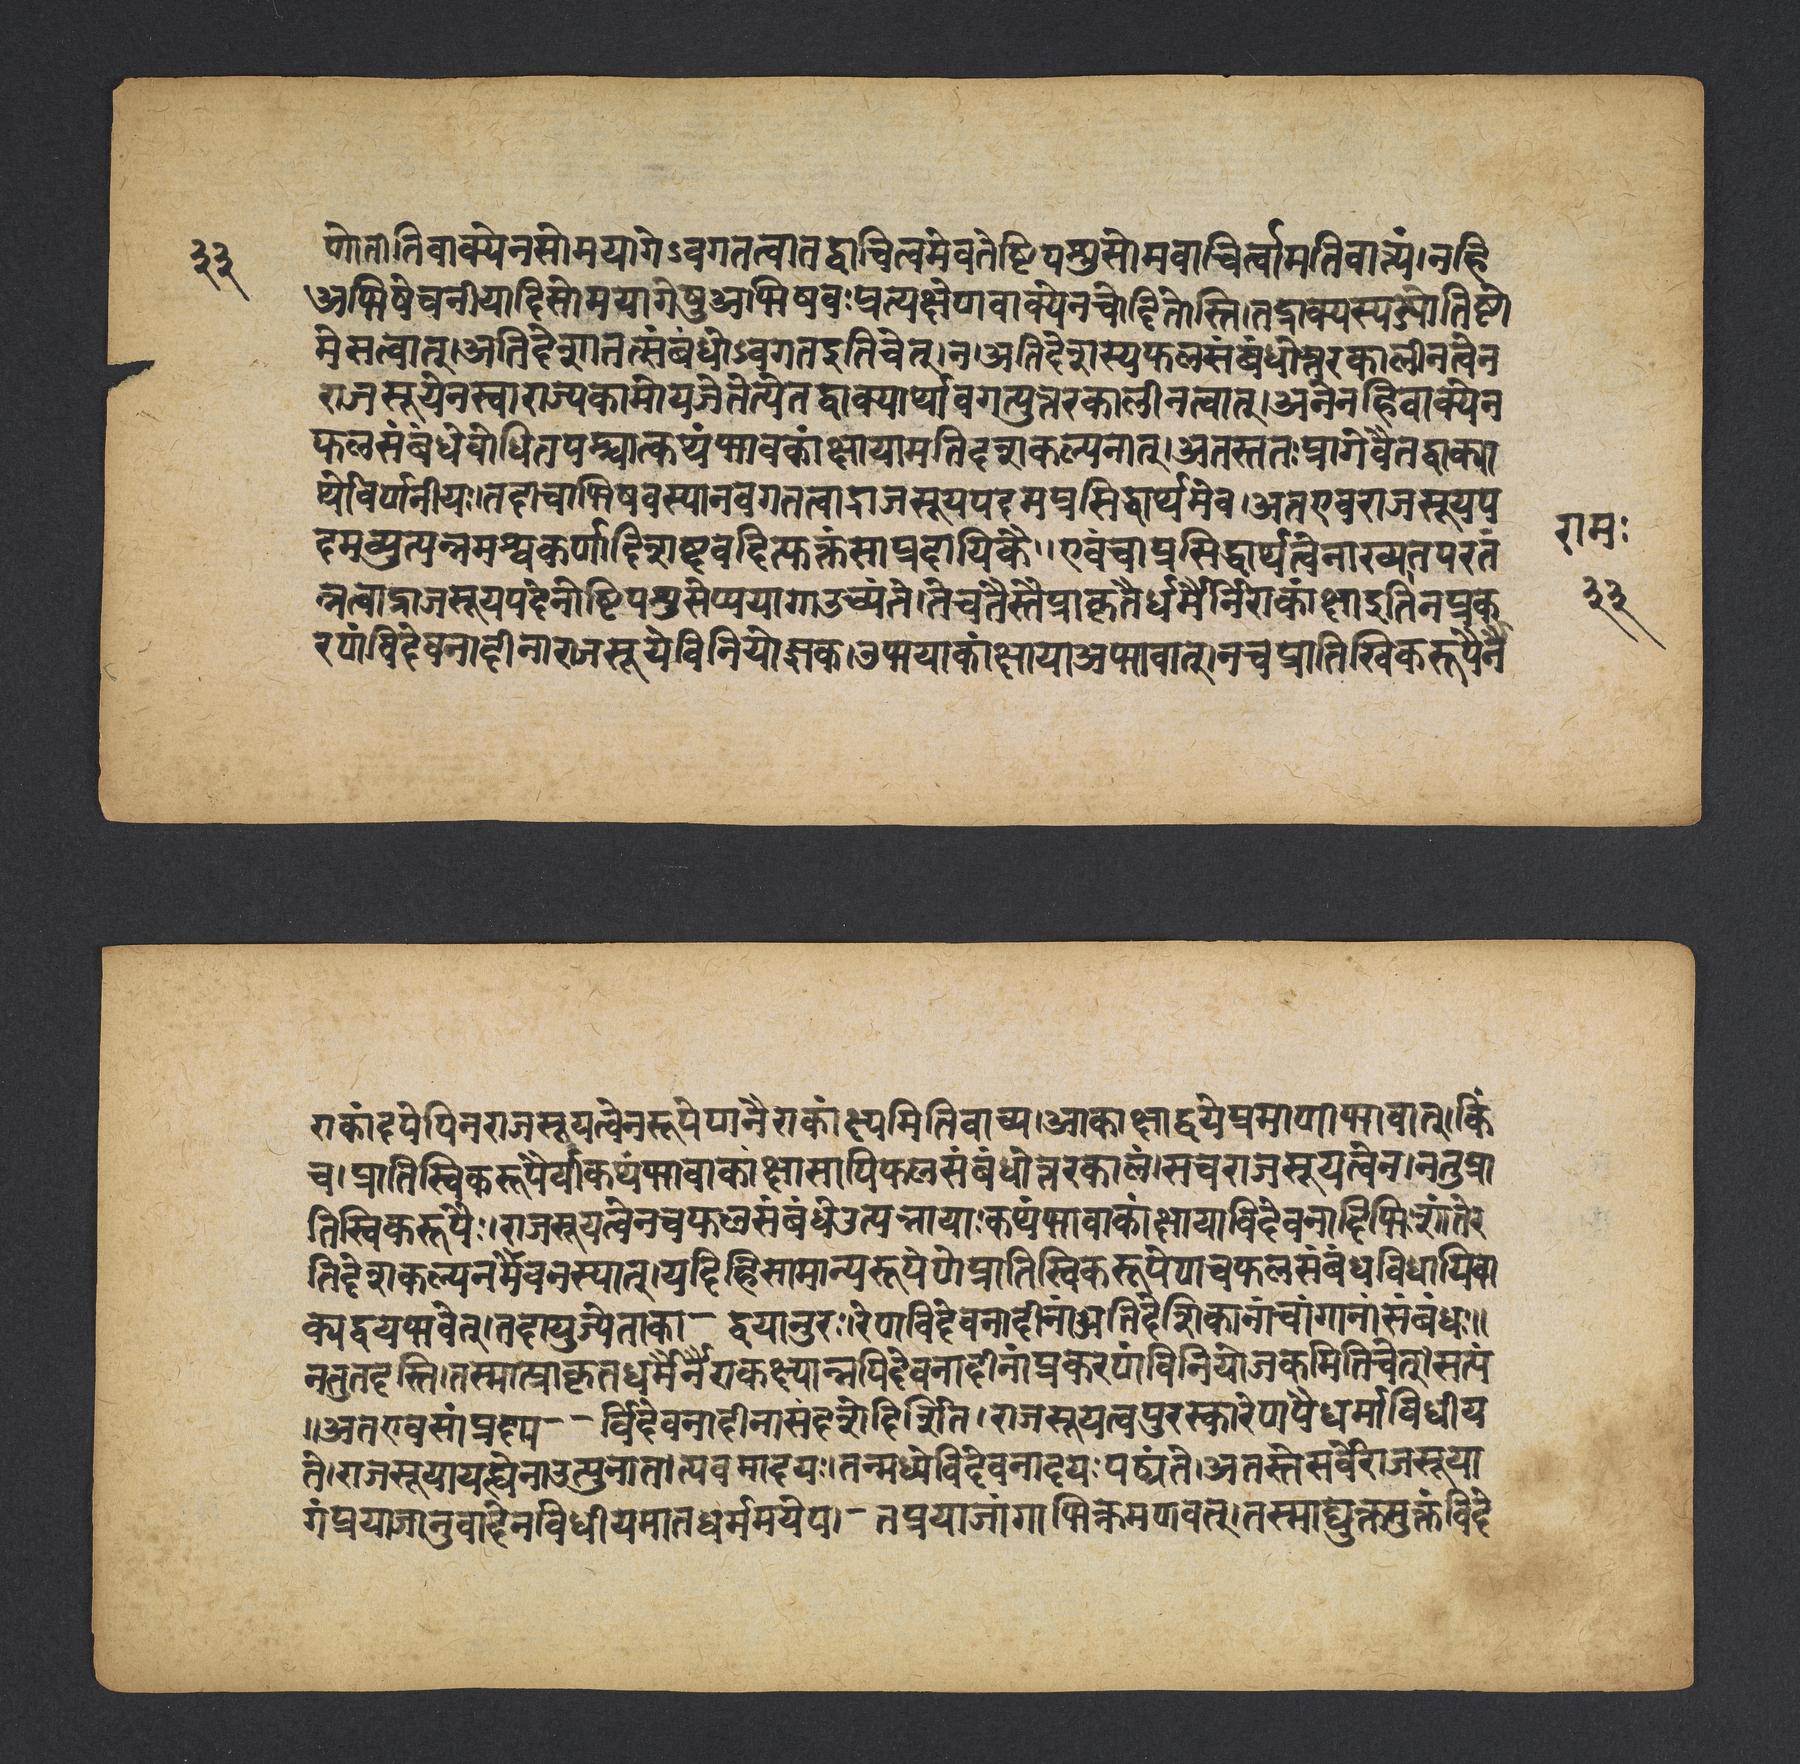 ३३
णोतीतिवाक्येनसोमयागेऽवगतत्वातद्वाचित्वमेवतेष्टिपशुसोमवाचित्वमितिवाच्यं।नहि
अभिषेचनीयादिसोमयागेषुअभिषवःप्रत्यक्षेणवाक्येनचोदितोस्ति।तद्वाक्यस्यज्योतिष्टो
मेसत्वात्।अतिदेशात्तत्संबंधोऽवगतइतिचेत्।न।अतिदेशस्यफलसंबंधोत्तरकालीनत्वेन
राजसूयेनस्वाराज्यकामोयजेतेत्येतद्वाक्यार्थावगत्युत्तरकालीनत्वात्।अनेनहिवाक्येन
फलसंबंधेबोधितेपश्चात्कथंभावकांक्षायामतिदेशकल्पनात्।अतस्ततःप्रागेवैतद्वाक्या
र्थोवर्णनीयः।तदाचाभिषवस्यानवगतत्वाद्राजसूयपदमप्रसिद्धार्थमेव।अतएवराजसूयप
दमव्युत्पन्नमश्वकर्णादिशब्दवदित्फक्तंसाप्रदायिकैः।एवंचाप्रसिद्धार्थत्वेनाख्यातपरतं
त्रत्वाद्राजसूयपदेनेष्टिपशुसोमयागाउच्यंते।तेचतैस्तैप्राकृतैर्धर्मैर्निराकांक्षाइतिनप्रक
रणंविदेवनादीनाराजसूयेविनियोजक।उभयाकांक्षायाअभावात्।नचप्रातिस्विकरूपैर्नै
रामः
३३
राकांक्ष्येपिनराजसूयत्वेनरूपेणनैराकांक्ष्यमितिवाच्य।आकाक्षाद्वयेप्रमाणाभावात्।किं
च।प्रातिस्विकरूपैर्याकथंभावाकांक्षासापिफलसंबंधोत्तरकालं।सचराजसूयत्वेन।नतुप्रा
तिस्विकरूपैः।राजसूयत्वेनचफलसंबंधेउत्पन्नायाःकथंभावाकांक्षायाविदेवनादिभिःशांतेर
तिदेशकल्पनमेवनस्यात्।यदिहिसामान्यरूपेणप्रातिस्विकरूपेणचफलसंबंधविधायिवा
क्यद्वयंभवेत्।तदायुज्येताका- द्वयानुरःरेणविदेवनादीनांअतिदेशिकानांचांगानांसंबंधः॥
नतुतदस्ति।तस्मात्प्राकृतधर्मैर्नैराकक्ष्यान्नविदेवनादीनांप्रकरणंविनियोजकमितिचेत्।सत्यं
॥अतएवसांप्रदाय-- र्विदेवनादीनासंदंशोदर्शितः।राजसूयत्वपुरस्कारेणयेधर्माविधीय
ते।राजसूयायह्येनाउत्पुनात।त्येवमादयः।तन्मध्येविदेवनादयःपठ्यंते।अतस्तेसर्वेराजसूया
गंप्रयाजानुवादेनविधीयमातधर्ममयेप।- तप्रयाजांगाभिक्रमणवत्।तस्माद्युक्तमुक्तंविदे